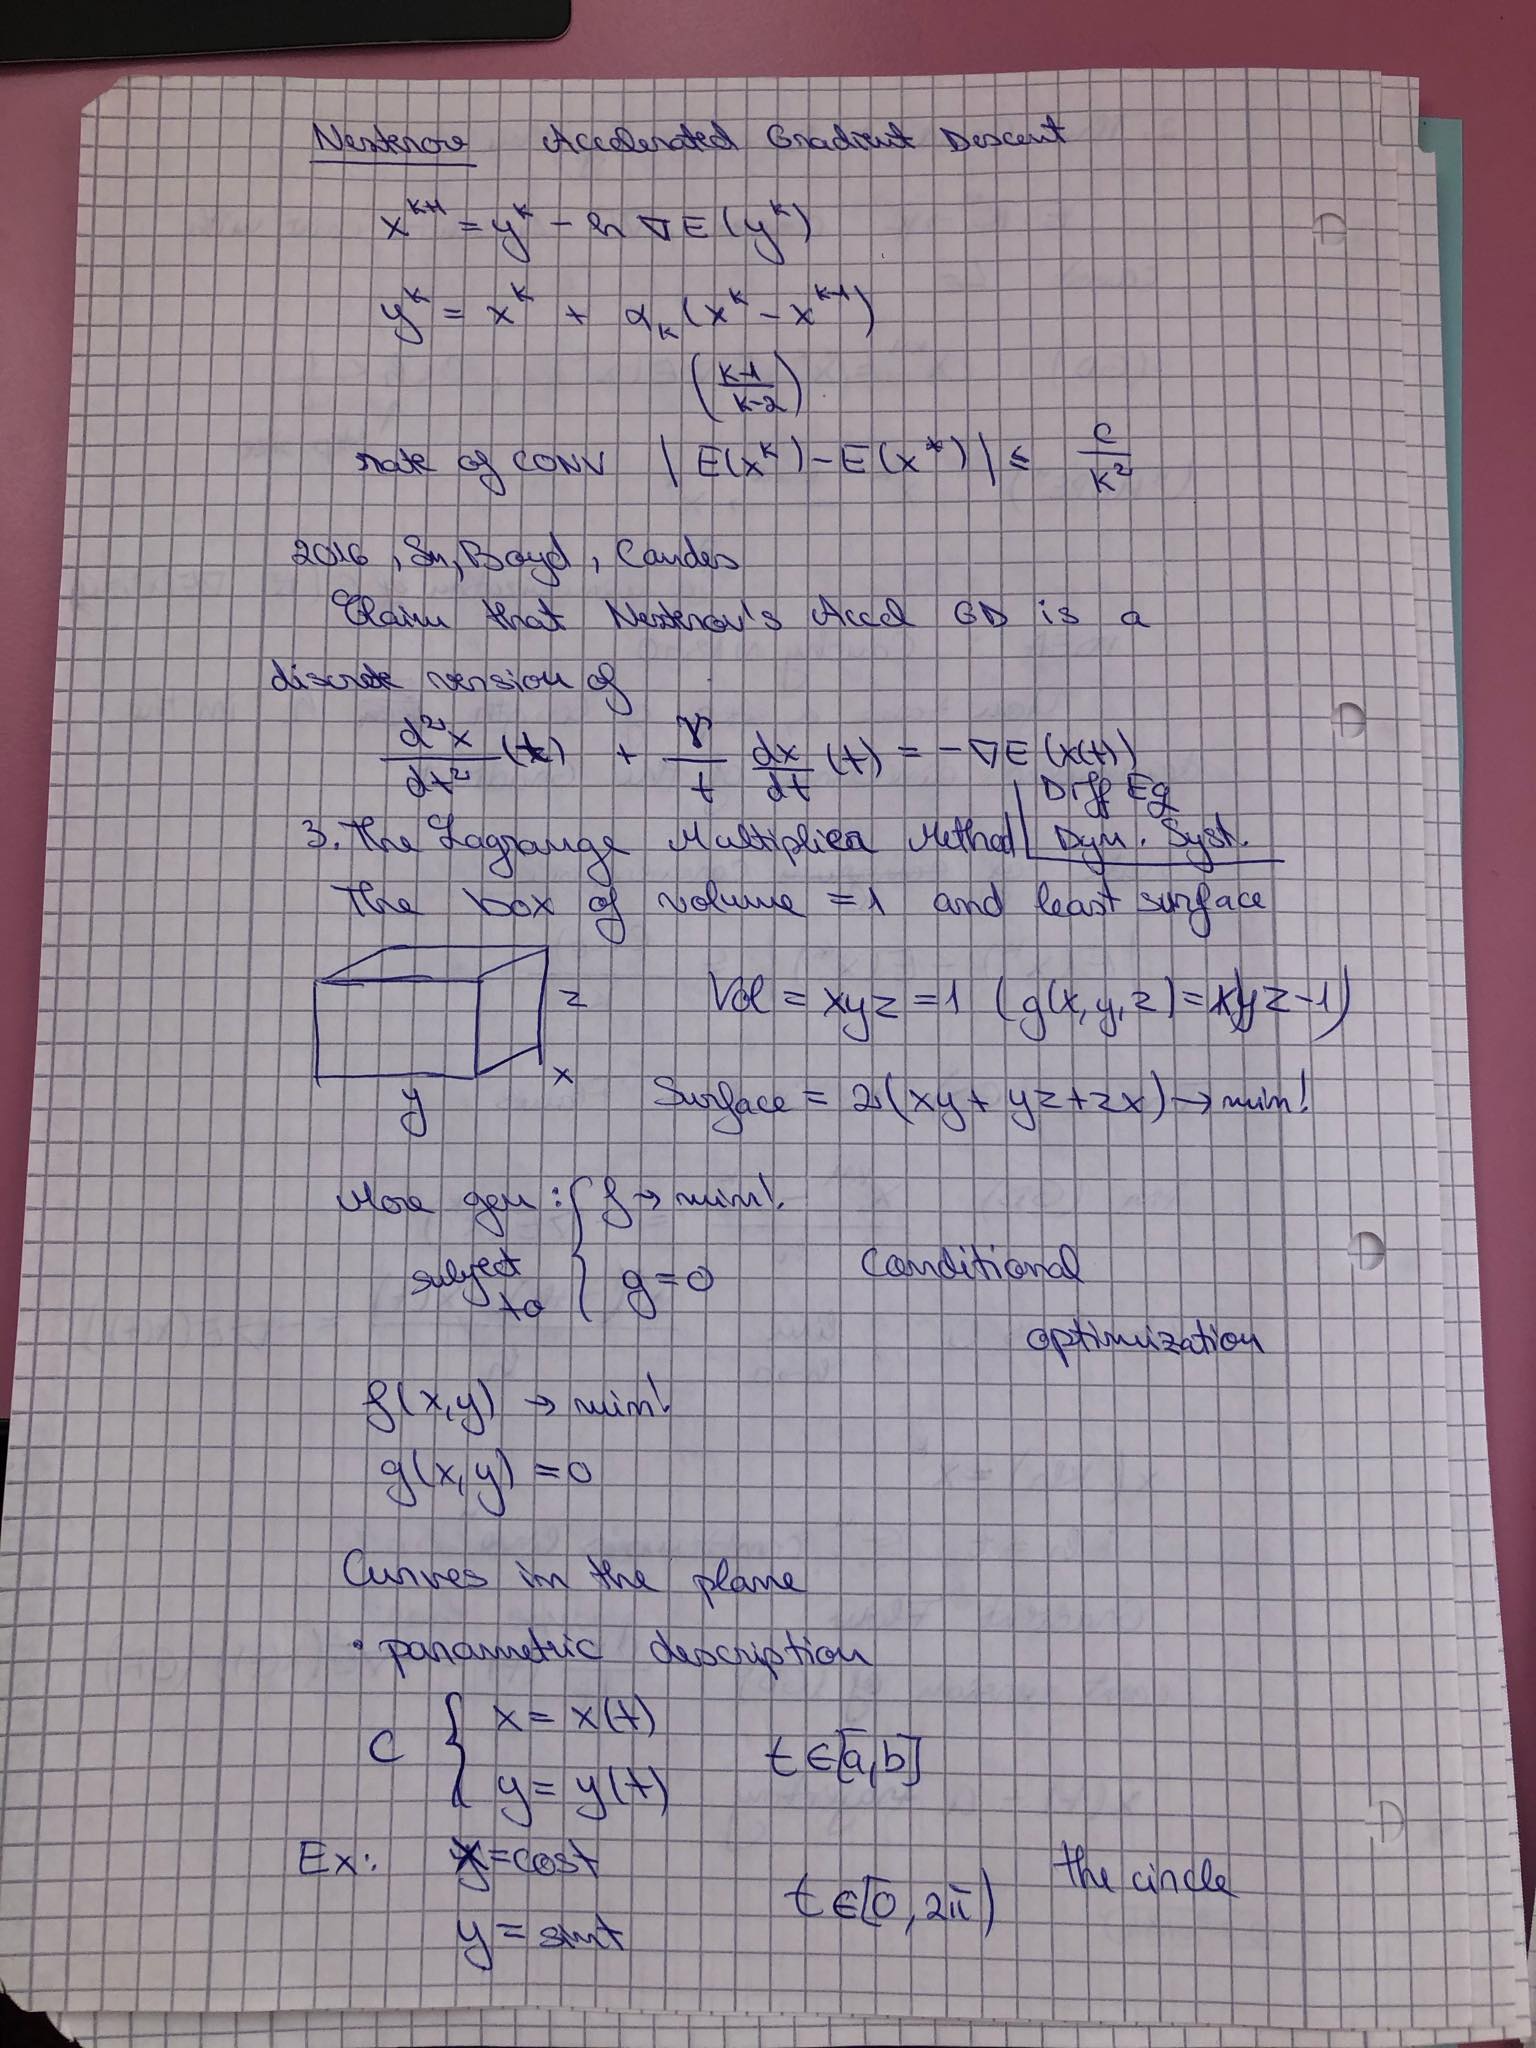 Nesterov Accelerated Gradient Descent
x^{k+1} = y^k - h ∇E(y^k)
y^k = x^k + α_k (x^k - x^{k-1})
(\frac{k-1}{k-2})
rate of conv |E(x^k) - E(x^*)| ≤ \frac{C}{k^2}
2016, Su, Boyd, Candes
Claim that Nesterov's Accel GD is a
discrete version of
\frac{d^2x}{dt^2}(t) + \frac{r}{t} \frac{dx}{dt}(t) = -∇E(x(t))
Diff Eq
3. The Lagrange Multiplier Method Dyn. Syst.
The box of volume = 1 and least surface
z
Vol = xyz = 1 (g(x,y,z) = xyz - 1)
x
y
Surface = 2(xy + yz + zx) → min!
More gen: { f → min!
subject to { g = 0
Conditional
optimization
f(x,y) → min!
g(x,y) = 0
Curves in the plane
• parametric description
C { x = x(t)
y = y(t)
t ∈ [a,b]
Ex: x = cost
y = sint
t ∈ [0, 2π)
the circle